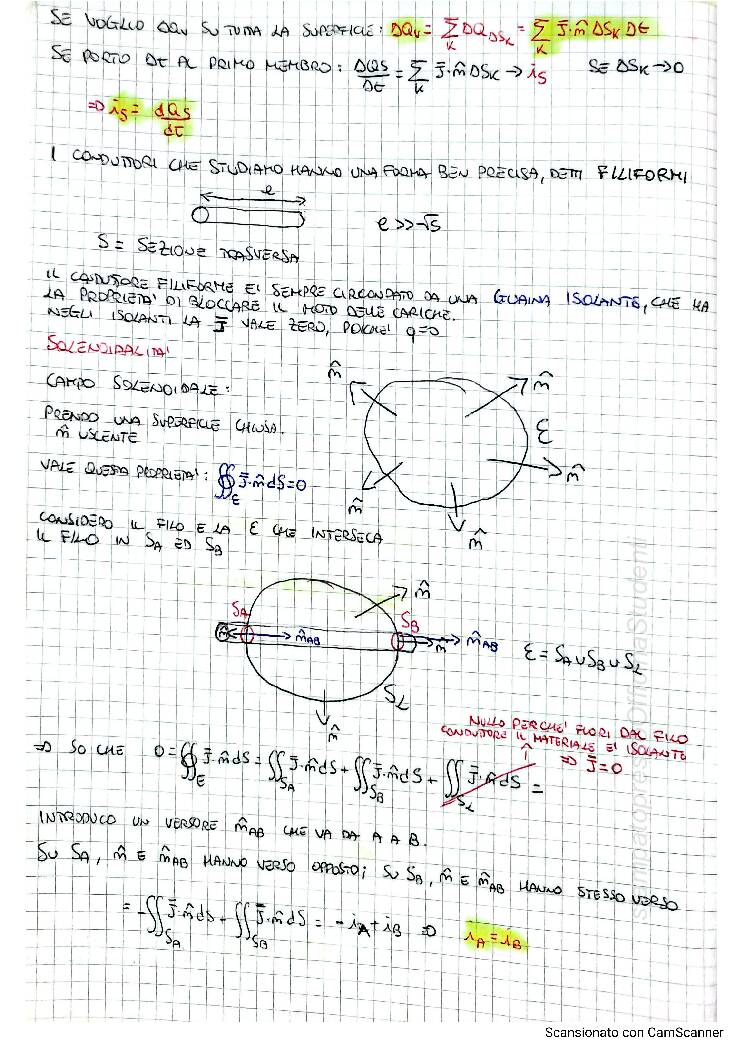 SE VOGLIO DQU SU TUTTA LA SUPERFICIE: DQU = Σ_K DQ_DSK = Σ_K J̄·m̂ DSK DT
SE PORTO DT AL PRIMO MEMBRO: DQS/DT = Σ_K J̄·m̂ DSK → iS SE DSK → 0
⇒ iS = dQS/dt
I CONDUTTORI CHE STUDIAMO HANNO UNA FORMA BEN PRECISA, DETTI FILIFORMI
e
e >> √S
S = SEZIONE TRASVERSA
IL CONDUTTORE FILIFORME E' SEMPRE CIRCONDATO DA UNA GUAINA ISOLANTE, CHE HA
LA PROPRIETA' DI BLOCCARE IL MOTO DELLE CARICHE.
NEGLI ISOLANTI LA J̄ VALE ZERO, POICHE' q=0
SOLENOIDALITA'
CAMPO SOLENOIDALE:
m̂ m̂
PRENDO UNA SUPERFICIE CHIUSA.
m̂ USCENTE
Ɛ
VALE QUESTA PROPRIETA': ∯_Ɛ J̄·m̂ dS = 0
m̂
m̂
m̂
CONSIDERO IL FILO E LA Ɛ CHE INTERSECA
IL FILO IN SA ED SB
m̂
SA SB
m̂ m̂AB m̂ m̂AB Ɛ = SA ∪ SB ∪ SL
SL
m̂
NULLO PERCHE' FUORI DAL FILO
CONDUTTORE IL MATERIALE E' ISOLANTE
⇒ J̄=0
⇒ SO CHE 0 = ∯_Ɛ J̄·m̂ dS = ∬_SA J̄·m̂ dS + ∬_SB J̄·m̂ dS + ∬_SL J̄·m̂ dS =
INTRODUCO UN VERSORE m̂AB CHE VA DA A A B.
SU SA, m̂ E m̂AB HANNO VERSO OPPOSTO; SU SB, m̂ E m̂AB HANNO STESSO VERSO
= -∬_SA J̄·m̂ dS + ∬_SB J̄·m̂ dS = -iA + iB ⇒ iA = iB
Scansionato con CamScanner